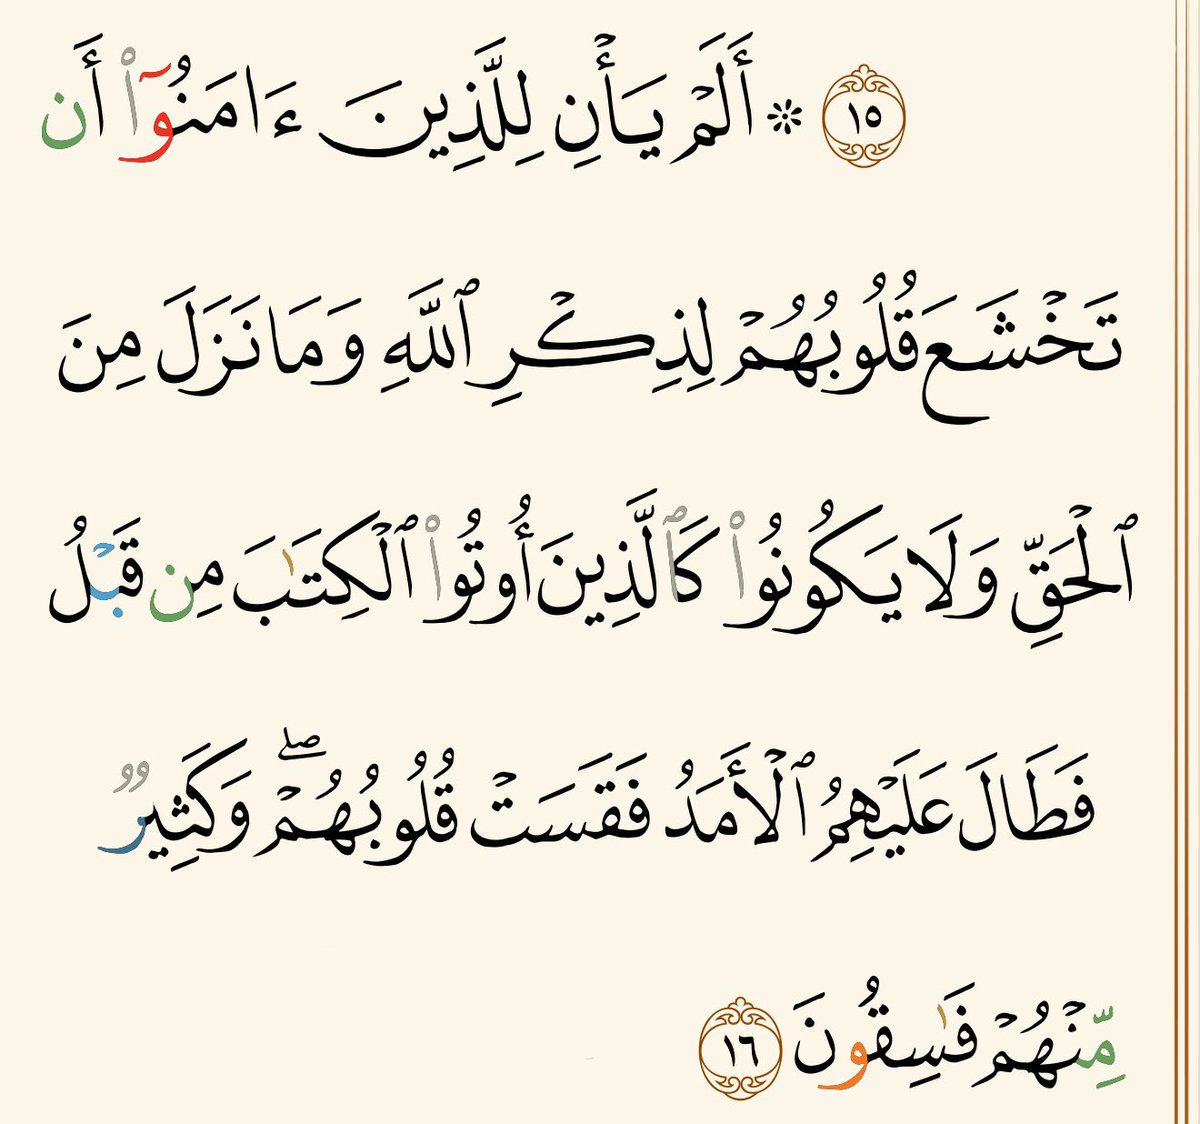 ١٥ ۞ أَلَمْ يَأْنِ لِلَّذِينَ ءَامَنُوٓا۟ أَن
تَخْشَعَ قُلُوبُهُمْ لِذِكْرِ ٱللَّهِ وَمَا نَزَلَ مِنَ
ٱلْحَقِّ وَلَا يَكُونُوا۟ كَٱلَّذِينَ أُوتُوا۟ ٱلْكِتَـٰبَ مِن قَبْلُ
فَطَالَ عَلَيْهِمُ ٱلْأَمَدُ فَقَسَتْ قُلُوبُهُمْ ۖ وَكَثِيرٌ
مِّنْهُمْ فَـٰسِقُونَ ١٦